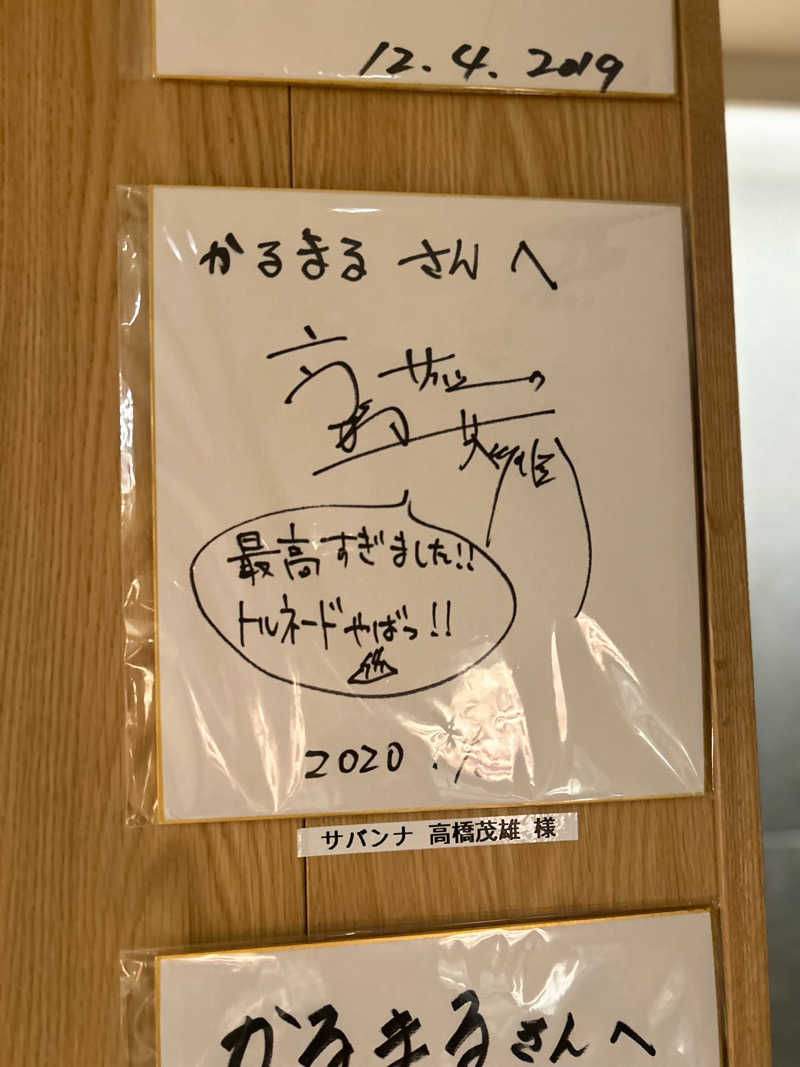 12.4.2019
かるまる さんへ
サバンナ
高橋茂雄
最高すぎました!!
トルネードやばっ!!
2020
サバンナ 高橋茂雄 様
かるまるさんへ